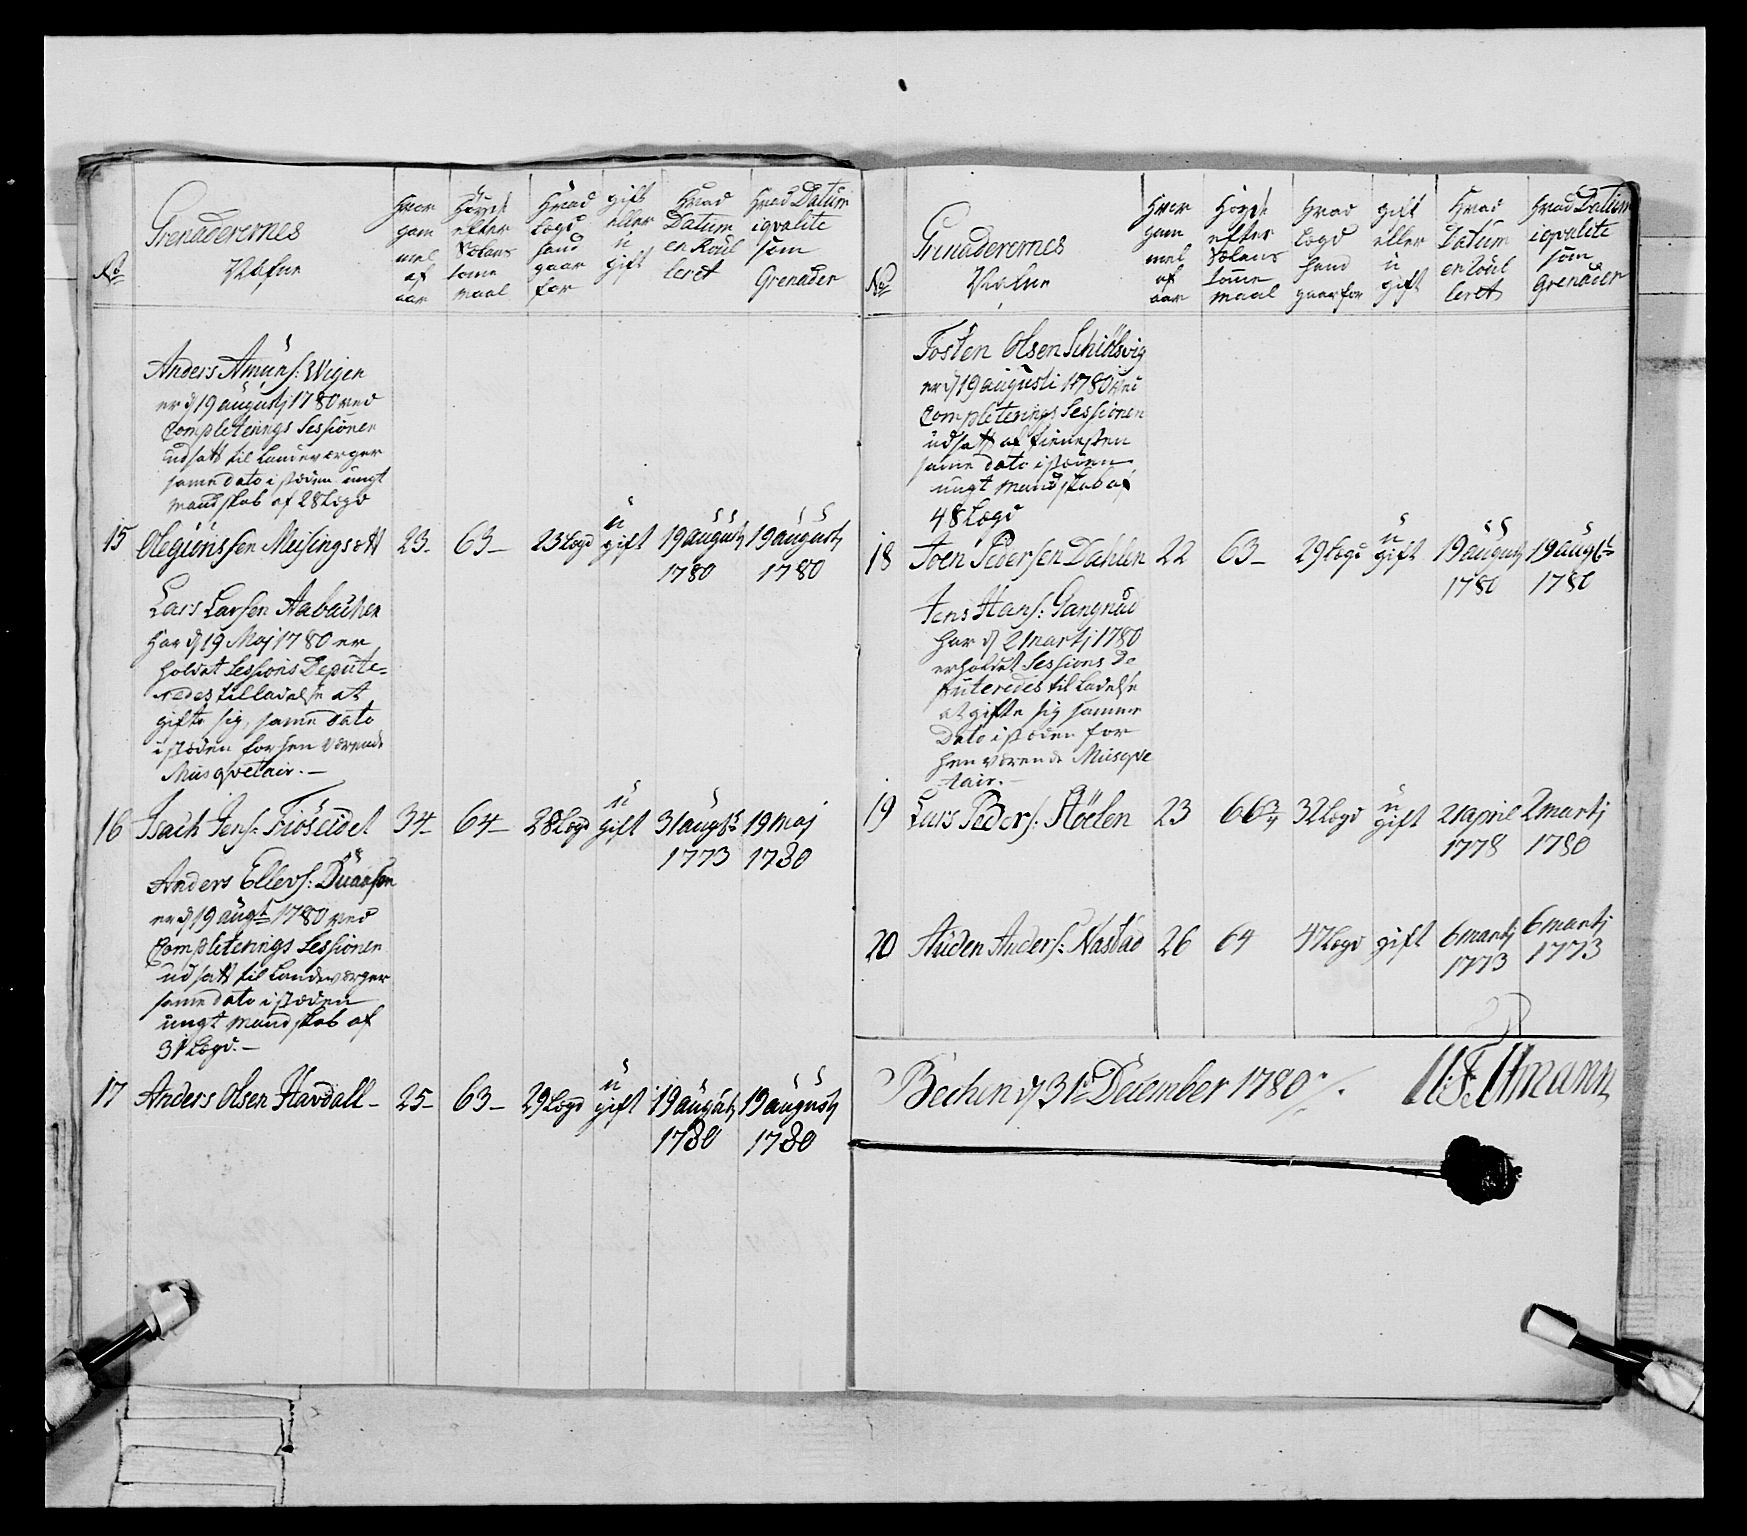 No
Grenaderernes
Nafne
hvor
gam
mel
af
aar
Höyde
efter
Sælans
tome
maal
Hvad
Lægd
hand
gaar
for
gift
eller
u
gift
Hvad
Datum
en Roul
leret
hvad Datum
i qvalite
som
Grenader
Anders Amuns: Wigen
er d 19 augustj 1780 ved
Completerings Sessionen
udsatt til Landeværger
same dato i stæden ungt
mandskab af 28 Lægd
15 Ole Gunssen Meisingsett 23- 63- 23 Lægd u gift 19 augustj 1780 19 augustj 1780
Lars Larsen Aabachen
har d 19 Maj 1780 er
holdet Sessions Depute-
redes tilladelse at
gifte sig, same dato
i stæden forhen værende
Musqvetair.-
16 Isach Jens: Fiöseidet 34- 64- 28 Lægd u gift 31 augst 1773 19 maj 1780
Anders Ellevs:
er d 19 augt 1780 ved
Completerings Sessionen
udsatt til Landeværger
same dato i stæden
ungt mandskab af
31 Lægd.-
17 Anders Olsen Havdall- 25- 63- 29 Lægd u gift 19 augustj 1780 19 augustj 1780
No
Grenaderernes
Nafne
hvor
gam
mel
af
aar
Höyde
efter
Sælans
tome
maal
Hvad
Lægd
hand
gaar for
gift
eller
u
gift
Hvad
Datum
en Roul
leret
hvad Datum
i qvalite
som
Grenader
Tosten Olsen Schiölsvig
er d 19 augusti 1780 ved
Completerings Sessionen
udsatt af tienesten
same dato i stæden
ungt mandskab af
48 Lægd
18 Joen Pedersen Dahlen 22 63- 29 Lægd u gift 19 augustj 1780 19 augst 1780
Jens Hans: Gangnæs
har d 2 martj 1780
erholdet Sessions De
puteredes til ladelse
at gifte sig samme
Dato i stæden for
hen værende Musqve
tair.-
19 Lars Peders: Höelen 23 66 32 Lægd u gift 21 april 1778 2 martj 1780
20 Auden Anders: Nastad 26 64 47 Lægd gift 6 martj 1773 6 martj 1773
Bechen d 31te December 1780